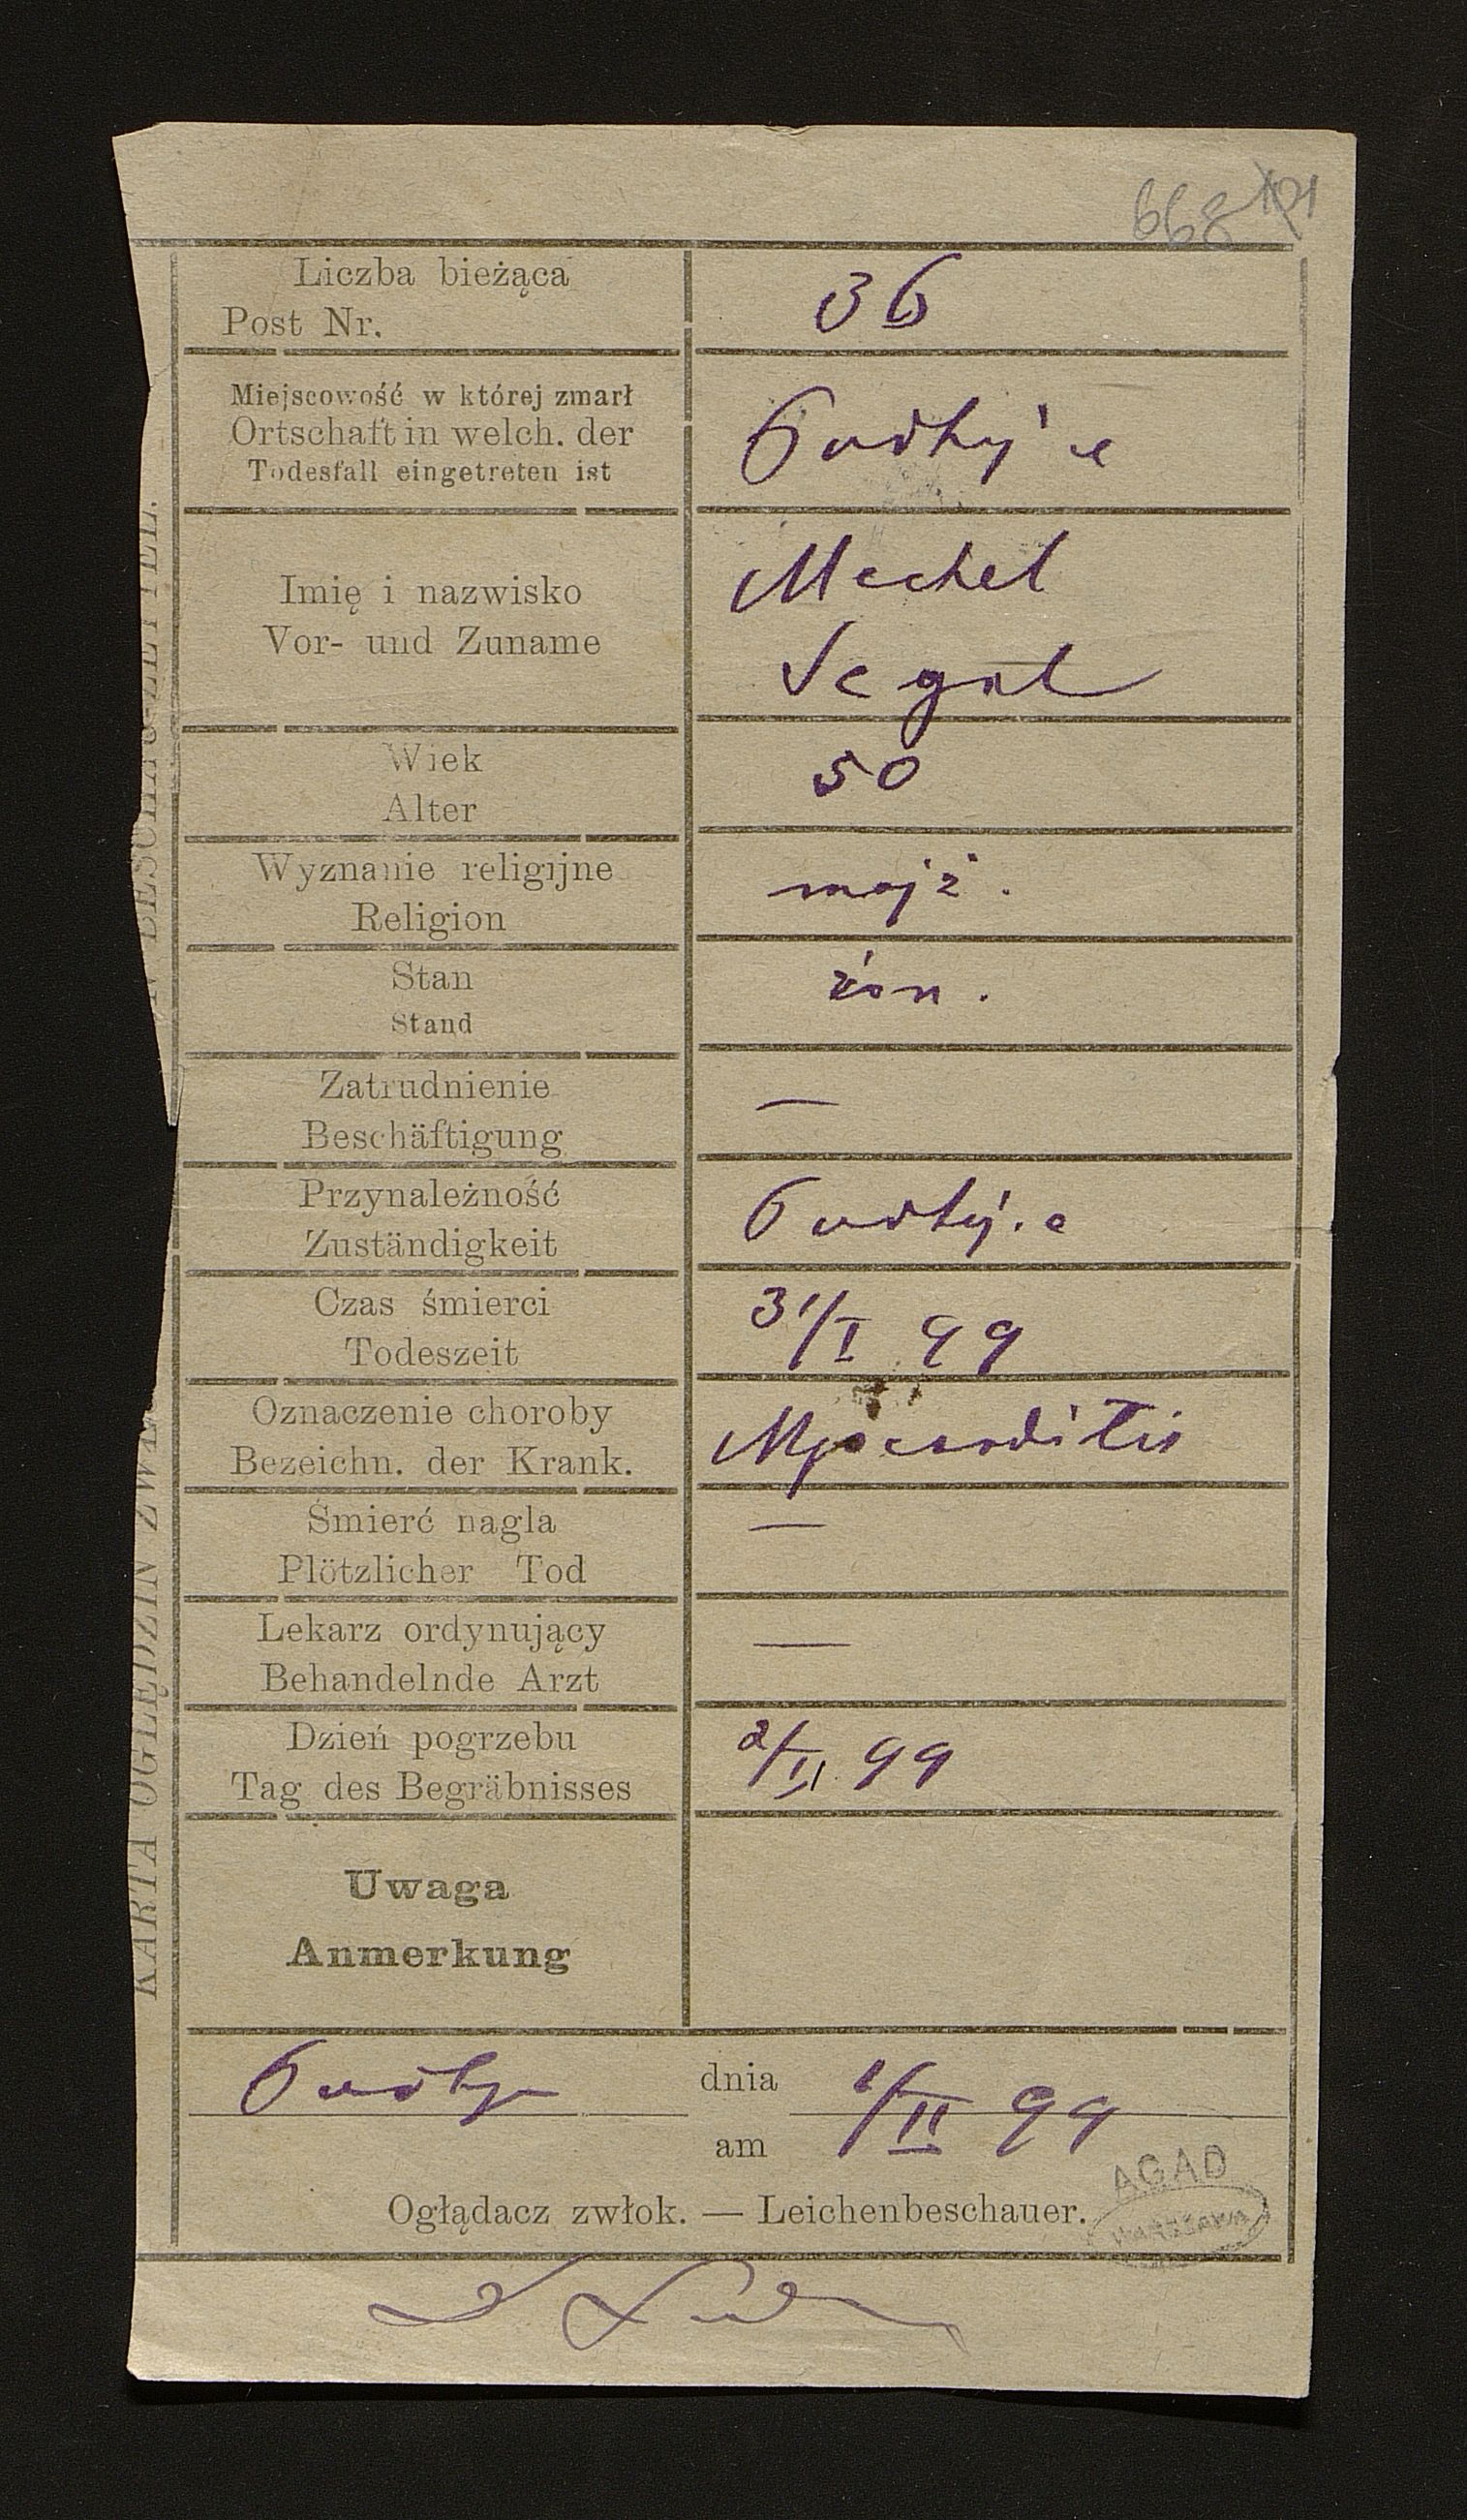 668
Liczba bieżąca
Post Nr.
36
Miejscowość w której zmarł
Ortschaft in welch. der
Todesfall eingetreten ist
Imię i nazwisko
Vor- und Zuname
Mechel
Segal
Wiek
Alter
50
Wyznanie religijne
Religion
mojż.
Stan
Stand
żon.
Zatrudnienie
Beschäftigung
—
Przynależność
Zuständigkeit
Czas śmierci
Todeszeit
31/I 99
Oznaczenie choroby
Bezeichn. der Krank.
Myocarditis
Śmierć nagla
Plötzlicher Tod
—
Lekarz ordynujący
Behandelnde Arzt
—
Dzień pogrzebu
Tag des Begräbnisses
2/II 99
Uwaga
Anmerkung
dnia
am
1/II 99
Oglądacz zwłok. — Leichenbeschauer.
AGAD
WARSZAWA
KARTA OGLĘDZIN